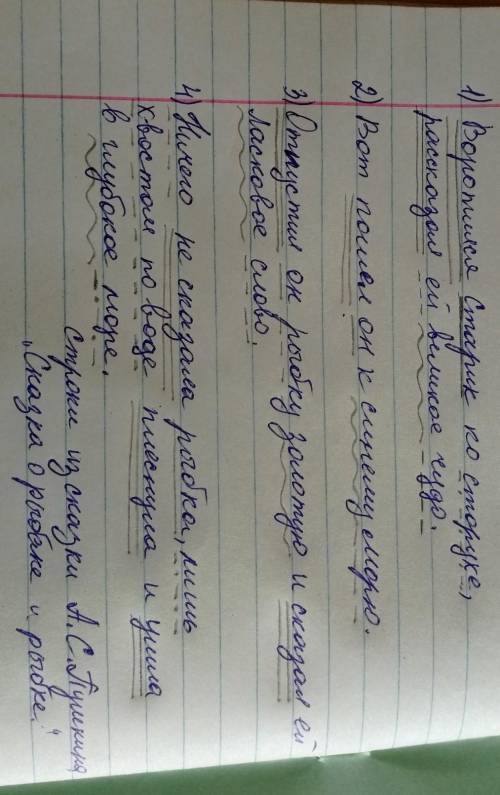 1) Воротился старик ко старухе,
рассказал ей великое чудо.
2) Вот пошел он к синему морю.
3) Отпустил он рыбку золотую и сказал ей
ласковое слово.
4) Ничего не сказала рыбка, лишь
хвостом по воде плеснула и ушла
в глубокое море.
строки из сказки А.С.Пушкина
„Сказка о рыбаке и рыбке."